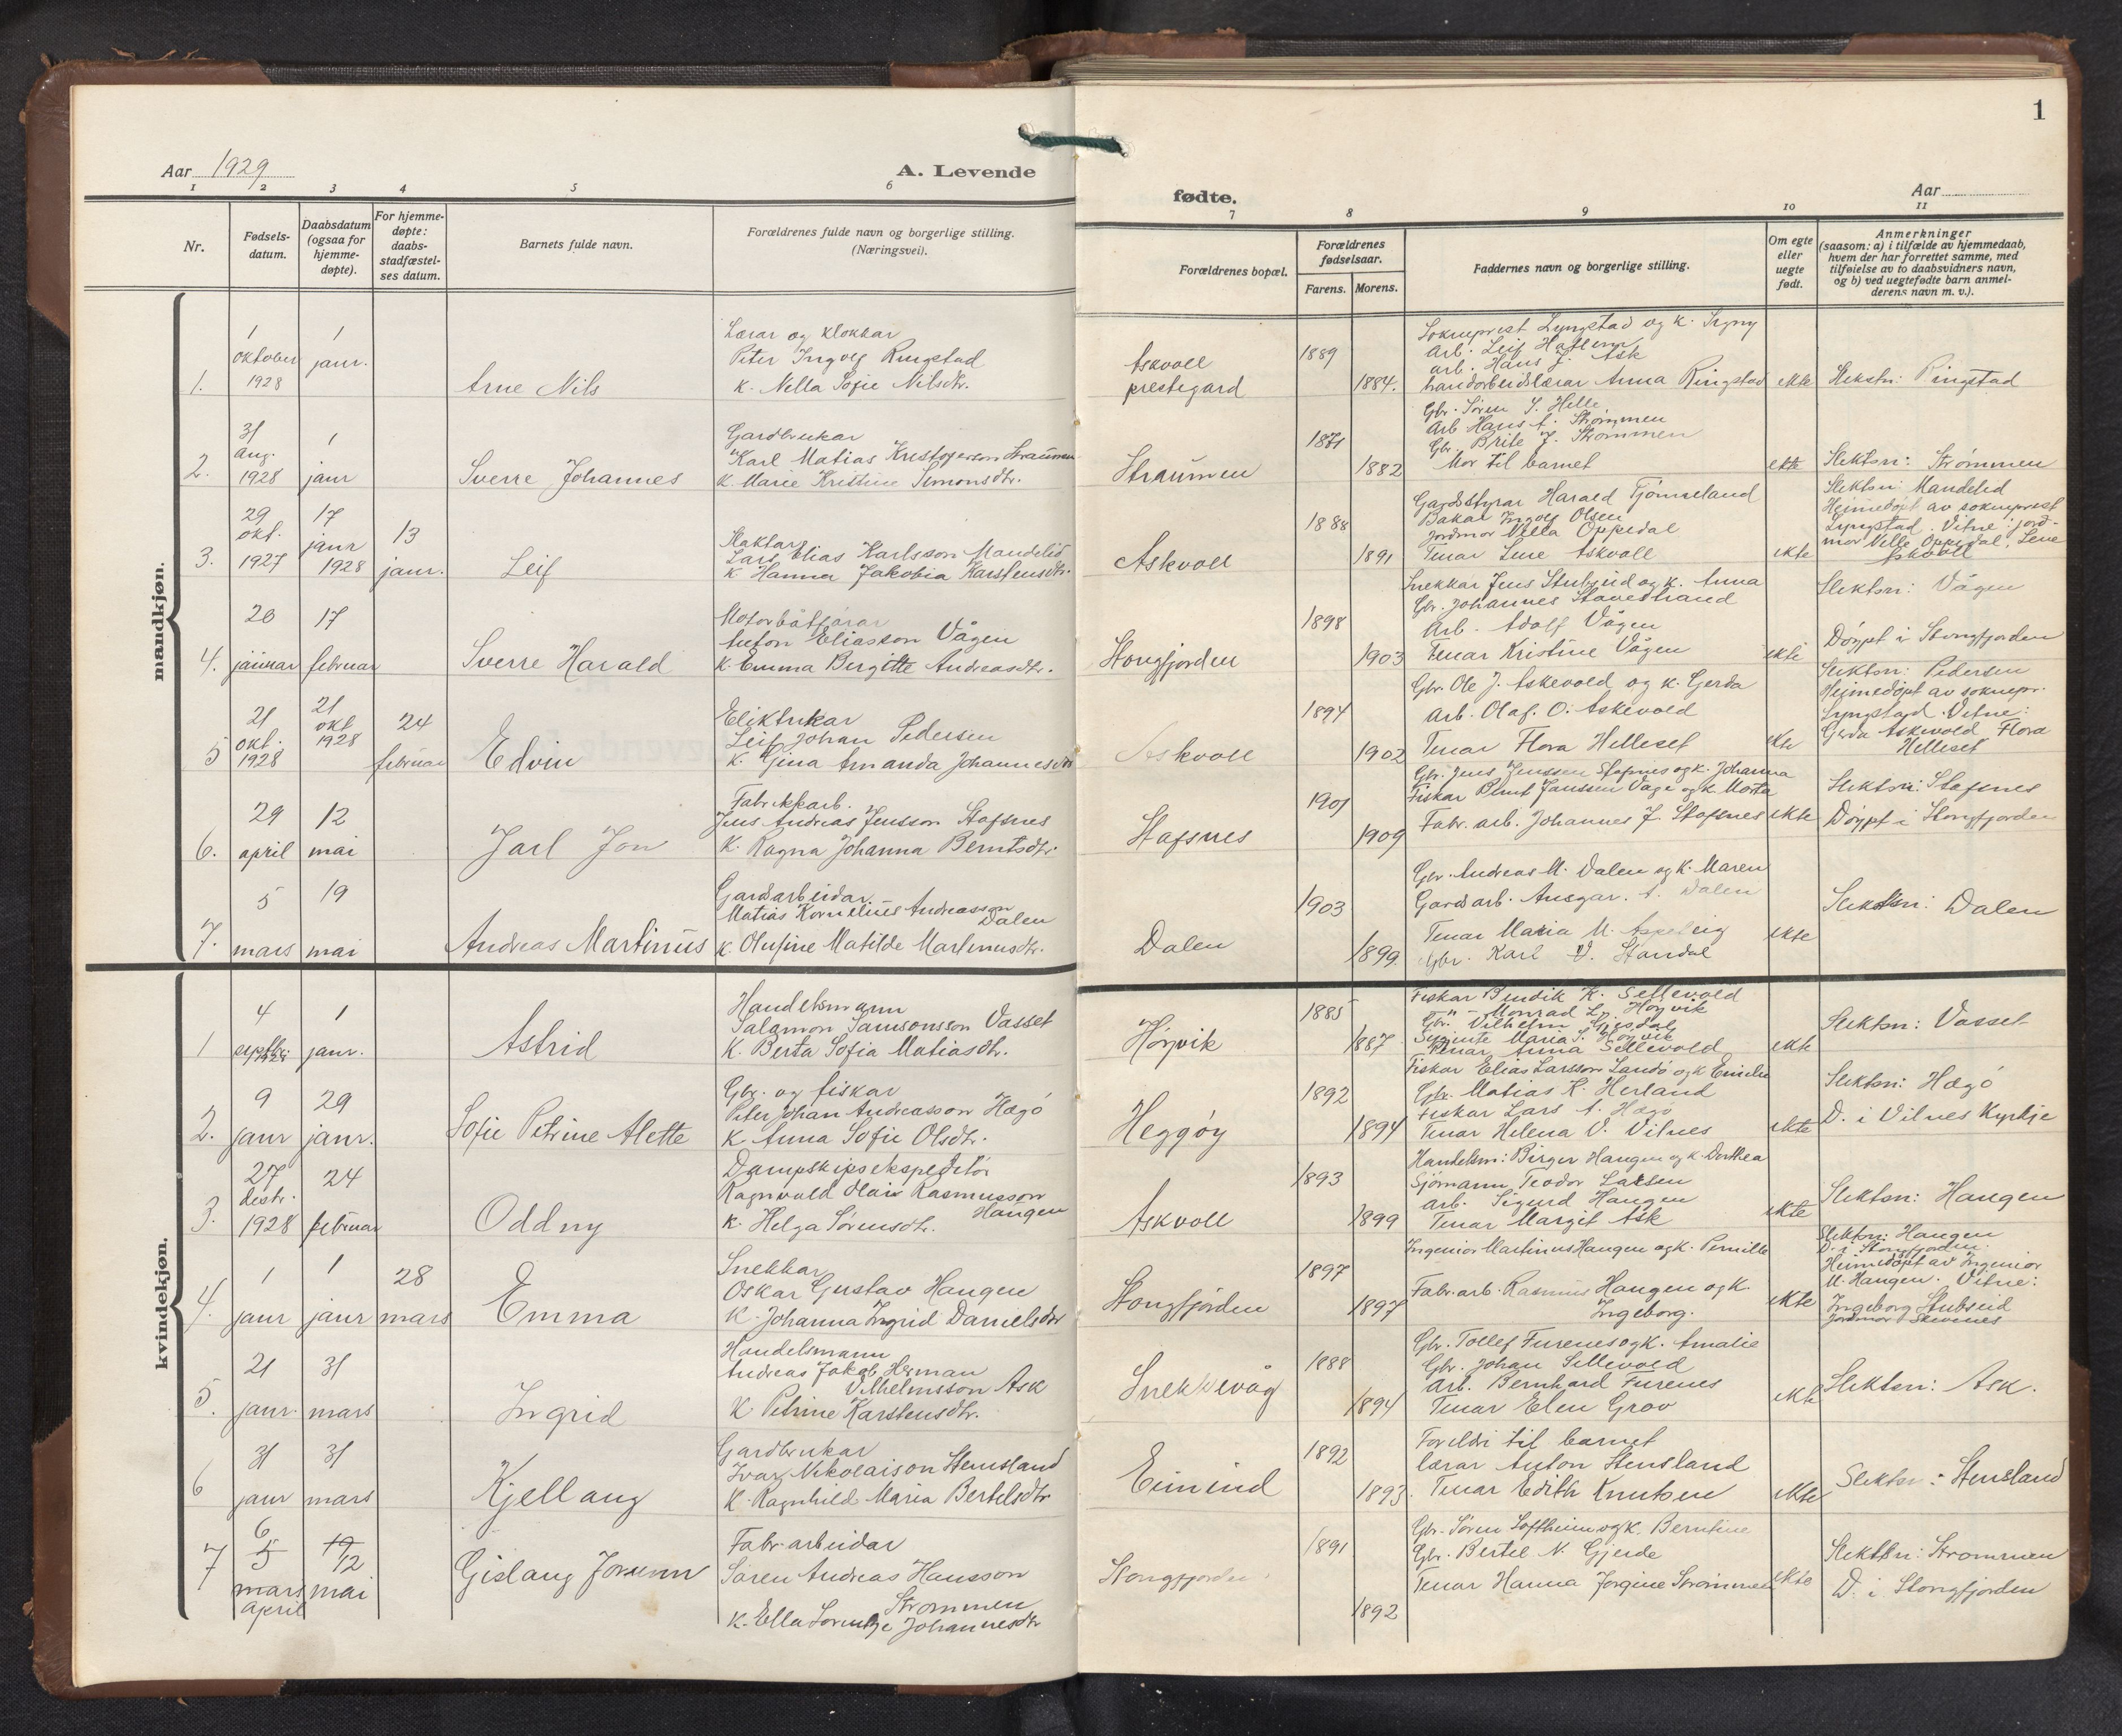 Aar 1929
A. Levende
fødte.
Aar
1
1 2 3 4 5 6 7 8 9 10 11
Nr.
Fødsels-
datum.
Daabsdatum
(ogsaa for
hjemme-
døpte).
For hjemme-
døpte:
daabs-
stadfæstel-
ses datum.
Barnets fulde navn.
Forældrenes fulde navn og borgerlige stilling.
(Næringsvei).
Forældrenes bopæl.
Forældrenes
fødselsaar.
Farens. Morens.
Faddernes navn og borgerlige stilling.
Om egte
eller
uegte
født.
Anmerkninger
(saasom: a) i tilfælde av hjemmedaab,
hvem der har forrettet samme, med
tilføielse av to daabsvidners navn,
og b) ved uegtefødte barn anmel-
derens navn m. v.).
mandkjøn.
1.
1
oktober
1928
1
januar.
Arne Nils
Lærar og klokkar
Peter Ingolf Ringstad
k. Nella Sofie Nilsdtr.
Askvoll
prestegard
1889
1884.
Sokneprest Lyngstad og k. Signy
Arb. Leif
arb. Hans J. Ask
handarbeidslærar Anna Ringstad
ekte
Slektsn: Ringstad
2.
31
Aug.
1928
1
jaur
Sverre Johannes
Gardbrukar
Karl Matias Kristoferson Straumen
k. Marie Kristine Simonsdtr.
Straumen
1871
1882
Gbr. Søren S. Helle
Arb Hans A. Strømmen
Gbr. Brite J. Strømmen
Mor til barnet
ekte
Slektsn: Strømmen
3.
29
okt.
1927
17
jaur
1928
13
jaur.
Leif
Slaktar
Lars Elias Karlsson Mandelid
k Hanna Jakobia Karstensdtr.
Askvoll
1888
1891
Gardstyrar Harald Tjønneland
Bakar Ingolf Olsen
jordmor Vella Oppedal
Tenar Lene Askvoll
ekte
Slektsn: Mandelid
Heimedøpt av sokneprest
Lyngstad. Vitne: jord-
mor Velle Oppedal, Lene
Askvoll
4.
20
januar
17
februar
Sverre Harald
Motorbåtførar
Anton Eliasson Vågen
k. Emma Birgitte Andreasdtr.
Stongfjorden
1898
1903
Snekkar Jens Stubseid og k. Anna
Gbr. Johannes Stavestrand
Arb. Adolf Vågen
Tenar Kristine Vågen
ekte
Slektsn: Vågen
Døypt i Stongfjorden
5
21
okt.
1928
21
okt
1928
24
februar
Edvin
Elektrikar
Leif Johan Pedersen
k. Gina Amanda Johannesdtr
Askvoll
1894
1902
Gbr. Ole J. Askevold og k. Gerda
Arb. Olaf. O. Askevold
Tenar Flora Helleset
ekte
Slektsn: Pedersen
Heimedøpt av soknepr.
Lyngstad. Vitne:
Gerda Askevold, Flora
Helleset
6.
29
april
12
mai
Jarl Jon
Fabrikkarb.
Jens Andreas Jensson Stafsnes
k. Ragna Johanna Berntsdtr.
Stafsnes
1901
1909
Gbr. Jens Jenssen Stafsnes og k. Johanna
Fiskar Bernt Janssen Våge og k. Marta
Fabr. arb. Johannes J. Stafsnes
ekte
Slektsn: Stafsnes
Døypt i Stongfjorden
7.
5
mars
19
mai
Andreas Martinus
Gardsarbeidar.
Matias Kornelius Andreasson
Dalen
k. Olufine Matilde Martinusdtr.
Dalen
1903
1899.
Gbr. Andreas M. Dalen og k. Maren
Gards arb. Ansgar. A. Dalen
Tenar Maria M.
Gbr. Karl V. Standal
ekte
Slektsn: Dalen
kvindekjøn.
1
4
septbr.
1928
1
jaur.
Astrid
Handelsmann
Salamon Samsonsson Vasset
k. Berta Sofia Matiasdtr.
Høyvik
1885
1887
Fiskar Bendik K. Sellevold
" - Monrad L. Høyvik
Gbr. Vilhelm Gjesdal
Maria S. Høyvik
Tenar Anna Sellevold
ekte
Slektsn: Vasset
2.
9
jaur
29
jaur.
Sofie Petrine Alette
Gbr. og fiskar
Peter Johan Andreasson Hægø
k Anna Sofie Olsdtr.
Heggøy
1892
1894
Fiskar Elias Larsson Landø og k Emilie
Gbr. Matias K. Herland
Fiskar Lars A. Hægø
Tenar Helena V. Vilnes
ekte
Slektsn: Hægø
D. i Vilnes Kyrkje
3.
27
desbr.
1928
24
februar
Oddny
Dampskipsekspeditør
Ragnvald Olai Rasmusson
Haugen
k. Helga Sørensdtr.
Askvoll
1893
1899
Handelsm: Birger Haugen og k. Dorthea
Sjømann Teodor Larsen
arb. Sigurd Haugen
Tenar Margit Ask
ekte
Slektsn: Haugen
4.
1
jaur
1
jaur
28
mars
Emma
Snekkar
Oskar Gustav Haugen
k. Johanna Ingrid Danielsdtr
Stongfjorden
1897
1897
Ingeniør Martinus Haugen og k. Pernille
Fabr. arb. Rasmus Haugen og k.
Ingeborg.
ekte
Slektsn: Haugen
D. i Stongfjorden.
Heimedøpt av Ingeniør
M. Haugen. Vitne:
Ingeborg Stubseid
jordmor
5.
21
jaur.
31
mars
Ingrid
Handelsmann
Andreas Jakob Herman
Vilhelmsson Ask
k Petrine Karstensdtr.
Snekkevåg
1888
1894
Gbr. Tollef Furenes og k. Amalie
Gbr. Johan Sellevold
Arb. Bernhard Furenes
Tenar Elen Grov
ekte
Slektsn: Ask.
6
31
jaur
31
mars
Kjellaug
Gardbrukar
Ivar Nikolaison Stensland
k. Ragnhild Maria Bertelsdtr
Eimind
1892
1893.
Foreldri til barnet
lærar Anton Stensland
Tenar Edith Knutsen
ekte
Slektsn: Stensland
7
6
5
mars
april
19
12
mai
Gislaug Jorunn
Fabr. arbeidar
Søren Andreas Hansson
Strømmen
k. Ella Johannesdtr
Stongfjorden.
1891
1892
Gbr. Søren Softheim og k. Berntine
Gbr. Bertel N. Gjerde
Tenar Hanna Jorgine Strømmen
ekte
Slektsn: Strømmen
D. i Stongfjorden